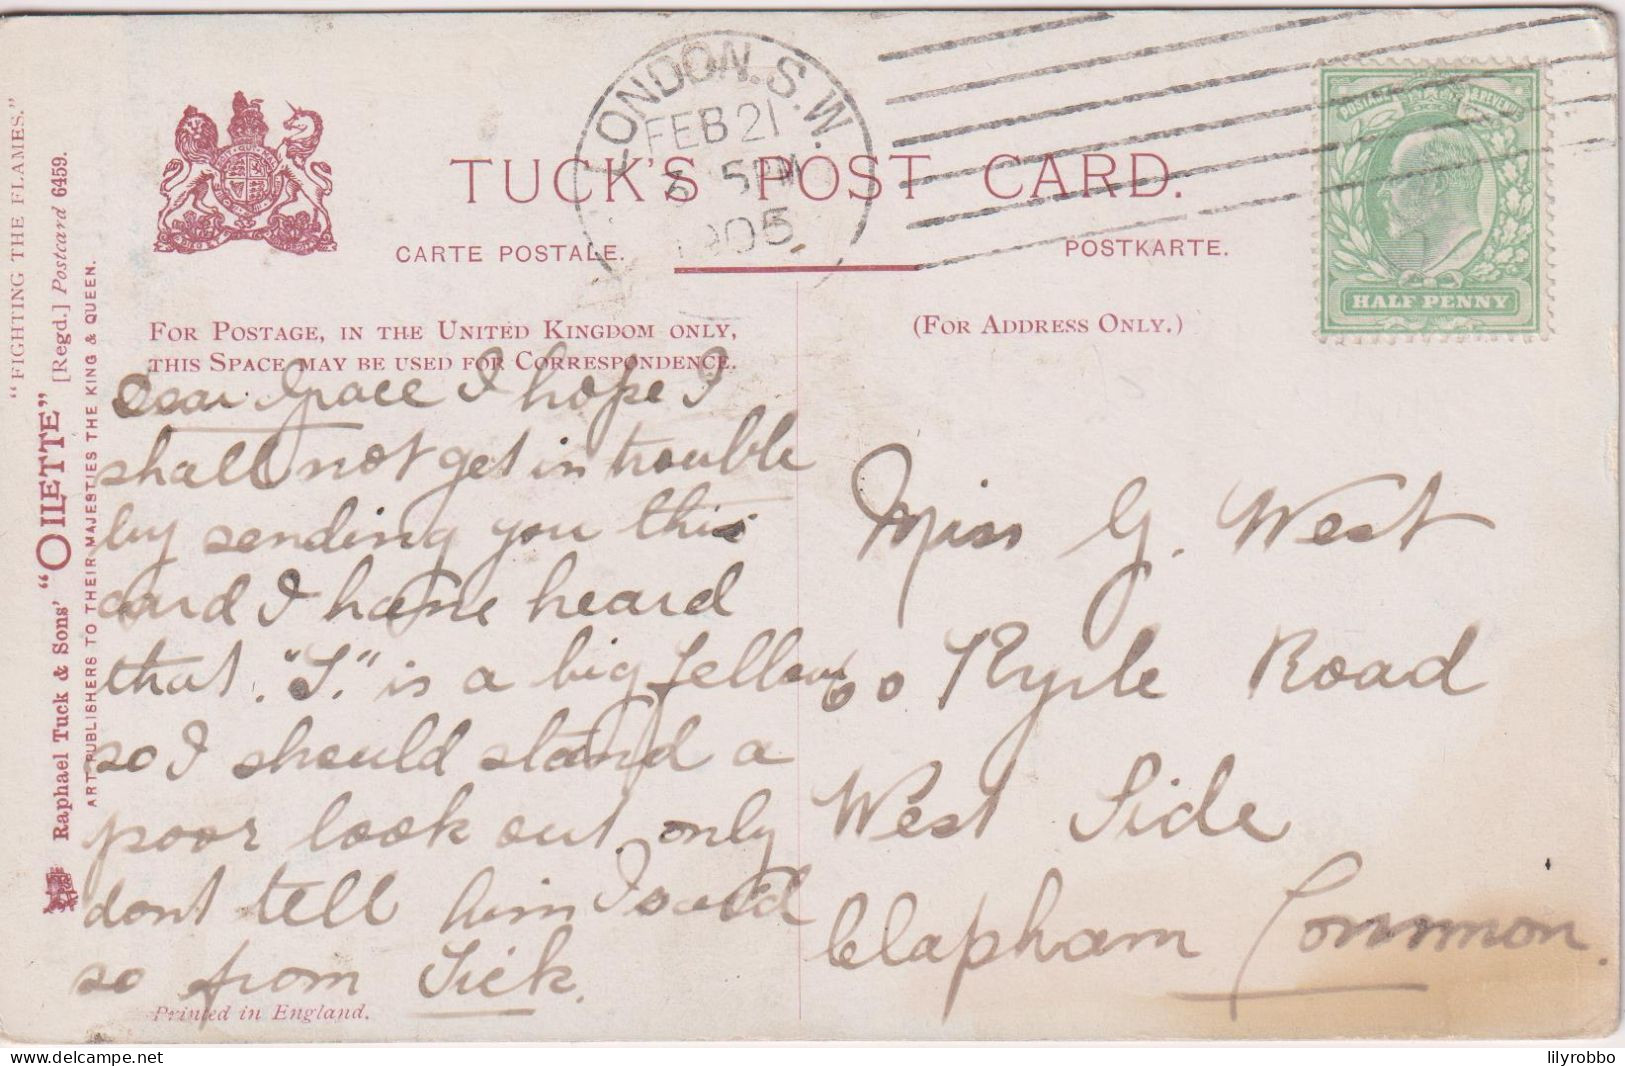 "FIGHTING THE FLAMES."
Raphael Tuck & Sons' "OILETTE" [Regd.] Postcard 6459.
ART PUBLISHERS TO THEIR MAJESTIES THE KING & QUEEN.
TUCK'S POST CARD.
CARTE POSTALE.
POSTKARTE.
LONDON. S.W.
FEB 21
5 PM
1905
POSTAGE & REVENUE
HALF PENNY
FOR POSTAGE, IN THE UNITED KINGDOM ONLY,
THIS SPACE MAY BE USED FOR CORRESPONDENCE.
(FOR ADDRESS ONLY.)
Dear Grace I hope I
shall not get in trouble
by sending you this
card I have heard
that "T." is a big fellow
so I should stand a
poor look out. only
dont tell him I said
so from
Printed in England.
Miss G. West
60 Ryde Road
West Side
Clapham Common.
lilyrobbo